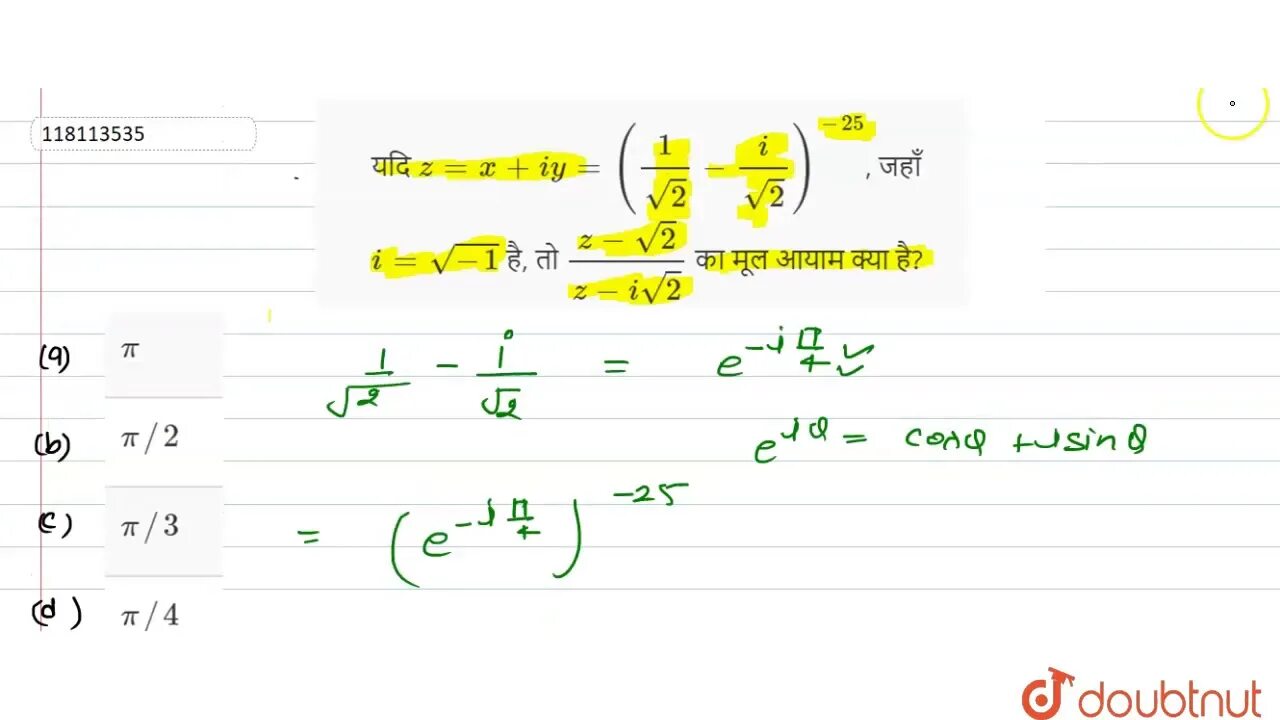 118113535
यदि z = x + iy = (1/√2 − i/√2)^−25, जहाँ
i = √−1 है, तो (z − √2)/(z − i√2) का मूल आयाम क्या है?
(a) π
(b) π/2
(c) π/3
(d) π/4
1/√2 − i/√2 = e^−iπ/4
e^iθ = cosθ + isinθ
= (e^−iπ/4)^−25
doubtnut